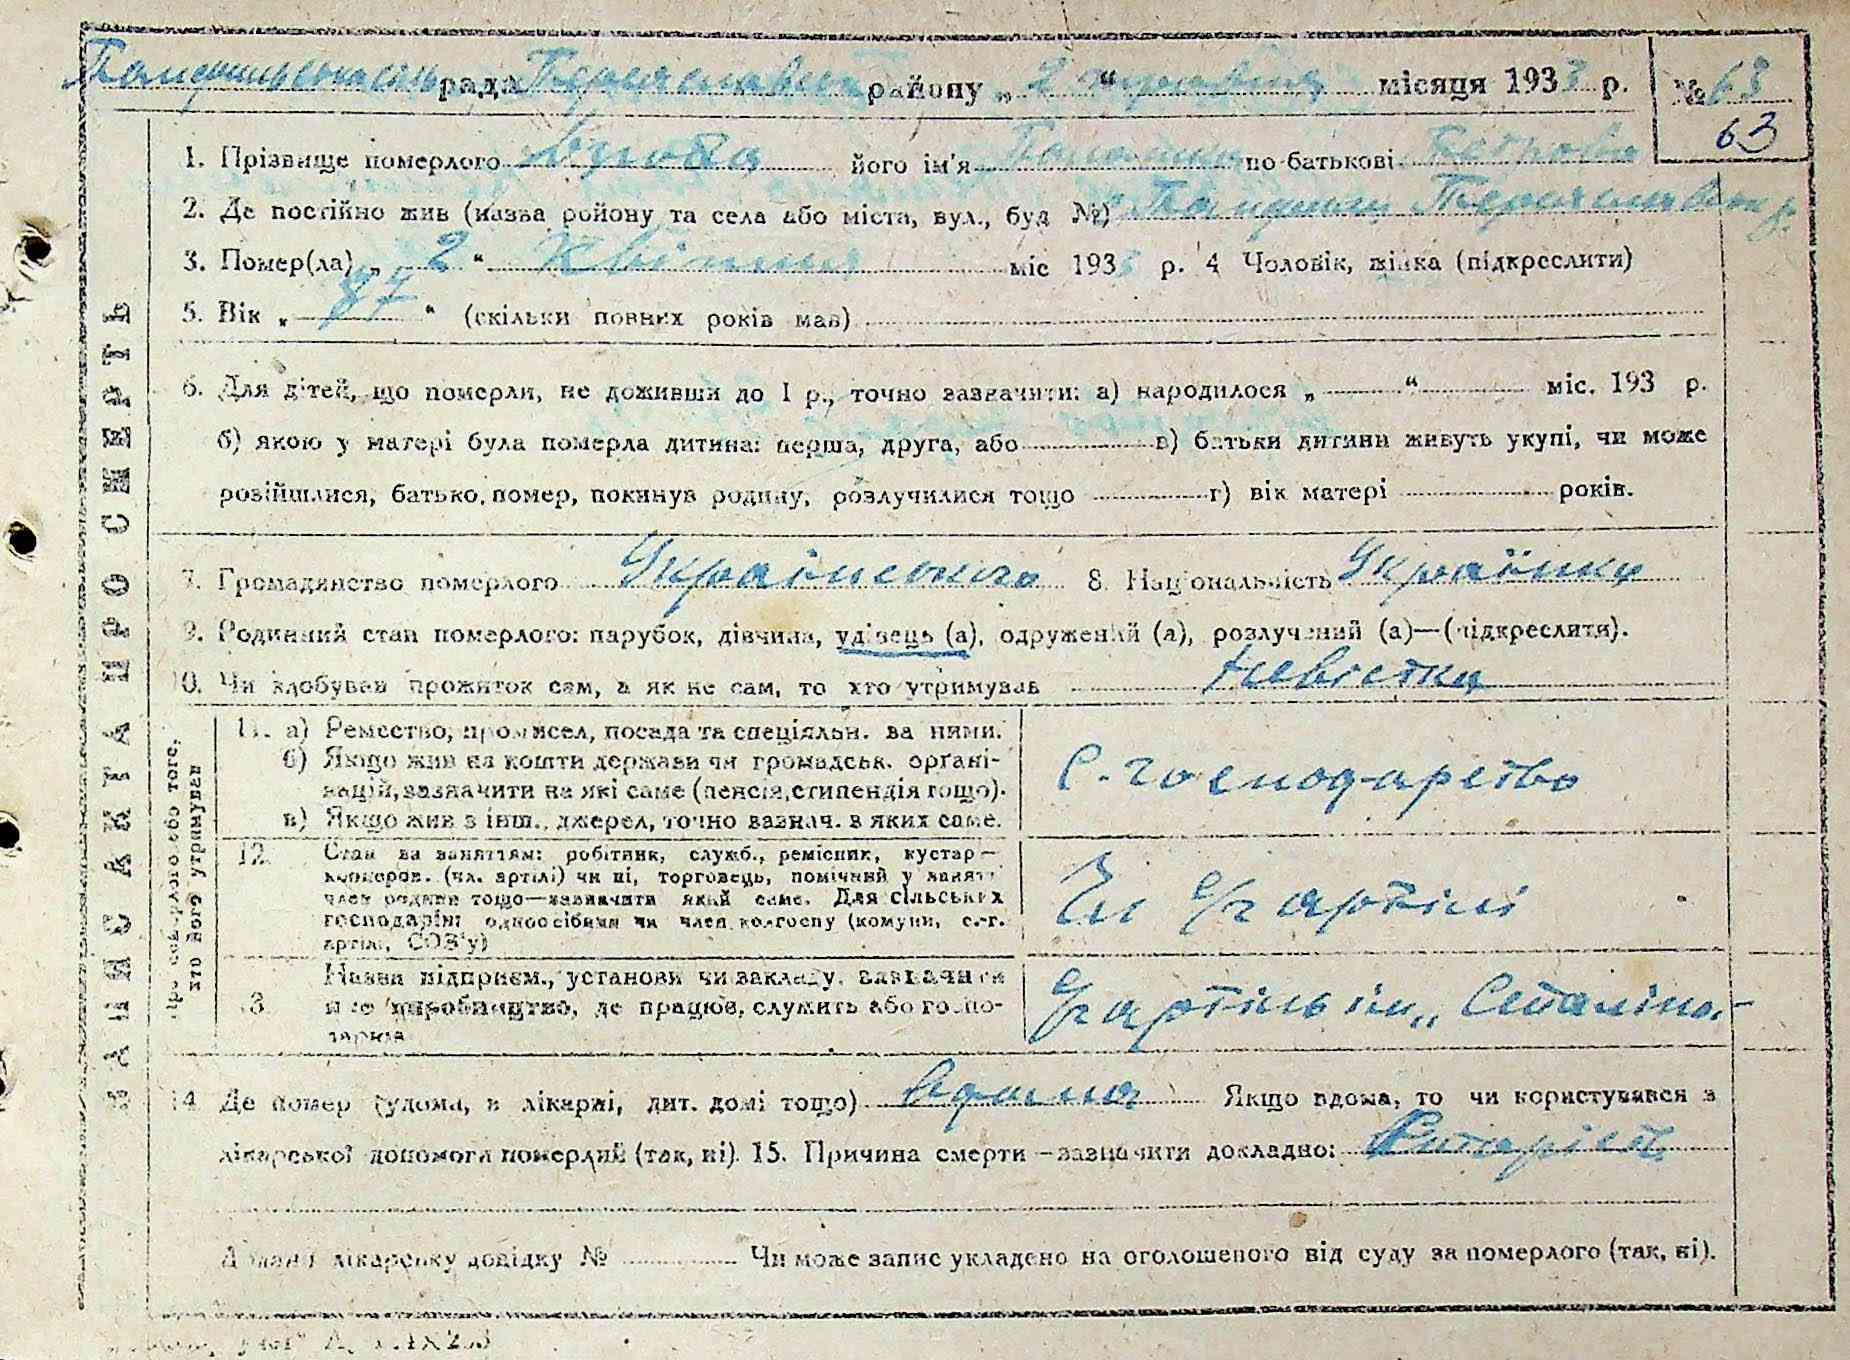 рада Переяславськ району „ 2 " травня місяця 1933 р. № 63
63
1. Прізвище померлого його ім'я по батькові Петрова
2. Де постійно жив (назва району та села або міста, вул., буд №) Переяславськ р.
3. Помер(ла) „ 2 " Квітня міс 1933 р. 4 Чоловік, жінка (підкреслити)
5. Вік „ 87 " (скільки повних років мав)
6. Для дітей, що померли, не доживши до 1 р., точно зазначити: а) народилося „ " міс. 193 р.
б) якою у матері була померла дитина: перша, друга, або в) батьки дитини живуть укупі, чи може
розійшлися, батько помер, покинув родину, розлучилися тощо г) вік матері років.
7. Громадянство померлого Українського 8. Національність Українка
9. Родинний стан померлого: парубок, дівчина, удівець (а), одружений (а), розлучений (а)—(підкреслити).
10. Чи здобував прожиток сам, а як не сам, то хто утримував Невістка
ЗАПИС АКТА ПРО СМЕРТЬ
Про померлого або того, хто його утримував
11. а) Ремество, промисел, посада та спеціяльн. за ними.
б) Якщо жив на кошти держави чи громадськ. органі-
зацій, зазначити на які саме (пенсія, стипендія тощо).
в) Якщо жив з інш. джерел, точно зазнач. з яких саме.
С. господарство
12. Стан за заняттям: робітник, служб., ремісник, кустар—
коопеpов. (чл. артілі) чи ні, торговець, помічний у занятті
член родини тощо—зазначити який саме. Для сільських
господарів: одноосібник чи член колгоспу (комуни, с.-г.
артілі, СОЗ'у)
Чл С/г артілі
13. Назва підприєм., установи чи закладу, зазначити
яке виробництво, де працює, служить або госпо-
дарює
С/г артіль ім „ Сталіна.
14 Де помер (удома, в лікарні, дит. домі тощо) вдома Якщо вдома, то чи користувався з
лікарської допомоги померлий (так, ні). 15. Причина смерти—зазначити докладно:
Додані лікарську довідку № Чи може запис укладено на оголошеного від суду за померлого (так, ні).